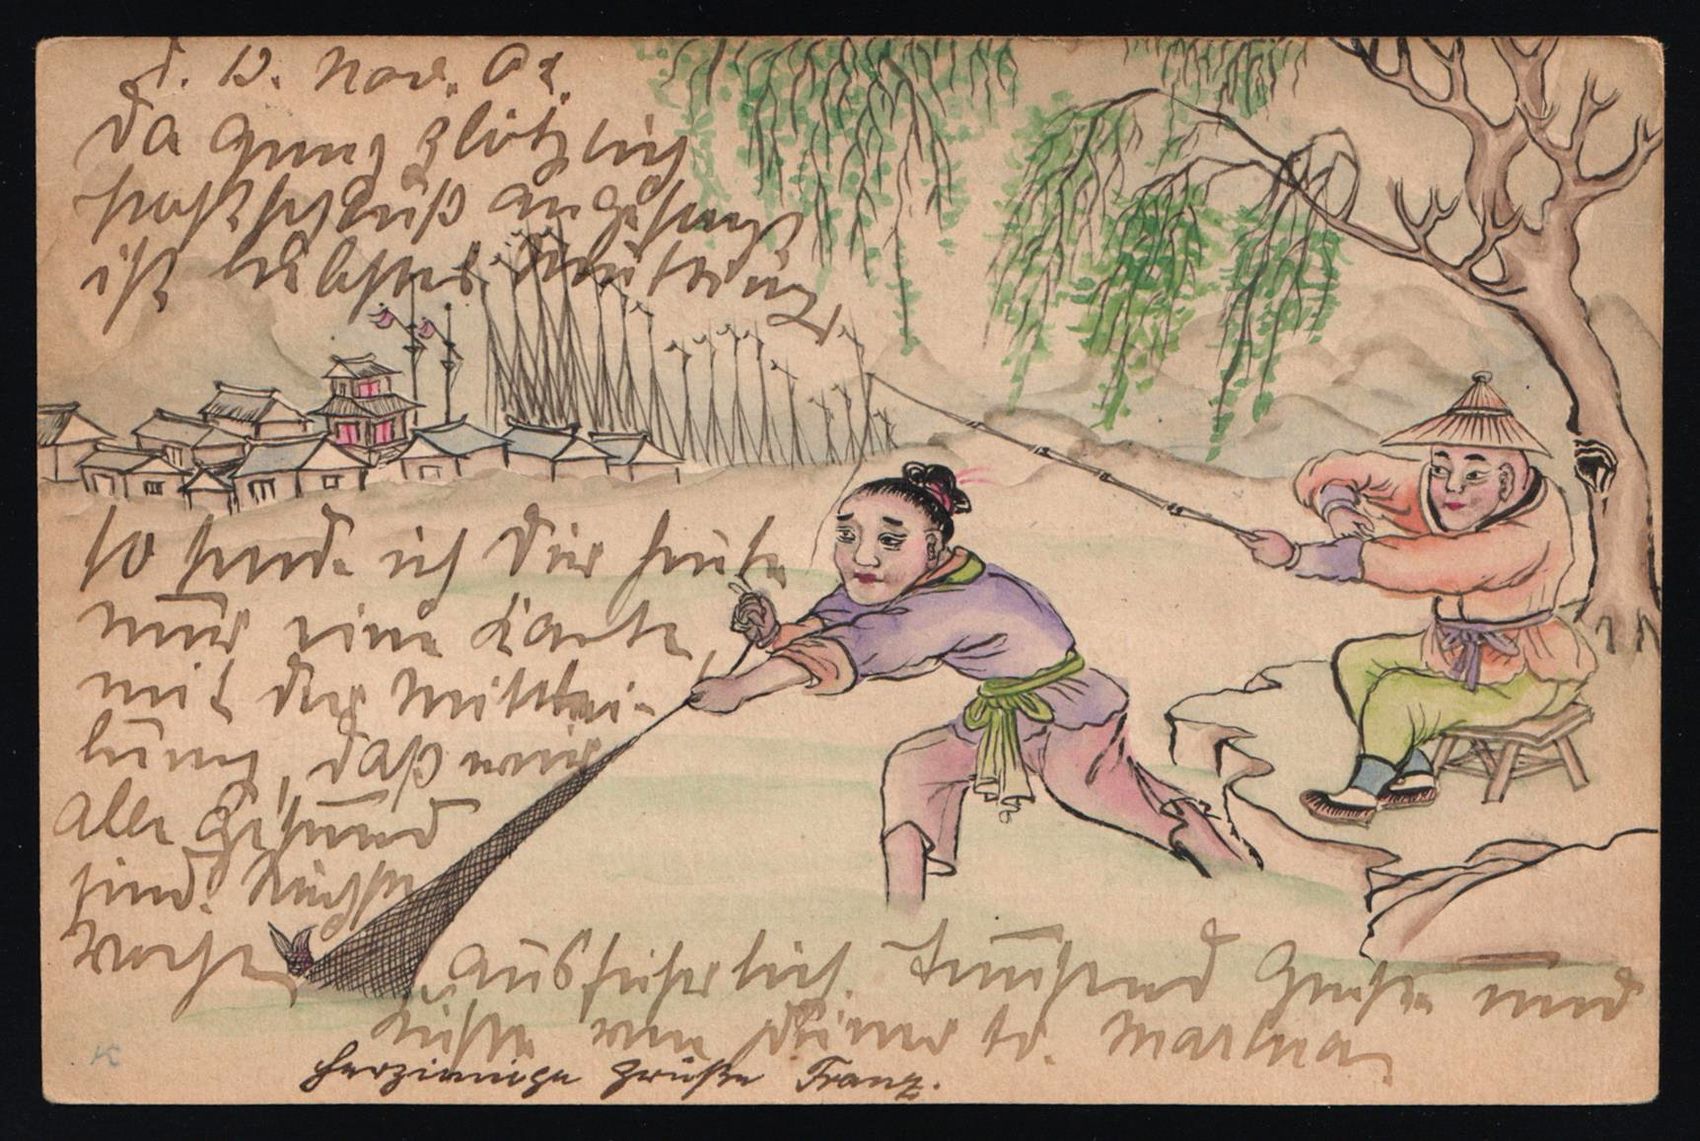 d. 13. Nov. 02.
Da ganz plötzlich
Postschluß angesagt
ist
so sende ich Dir heute
nur eine Karte
mit der Mitthei-
lung, daß wir
alle gesund
sind. Nächste
Woche ausführlich. Tausend Grüße und
Küsse von Deiner tr. Martha.
Herzinnige Grüße Franz.
K